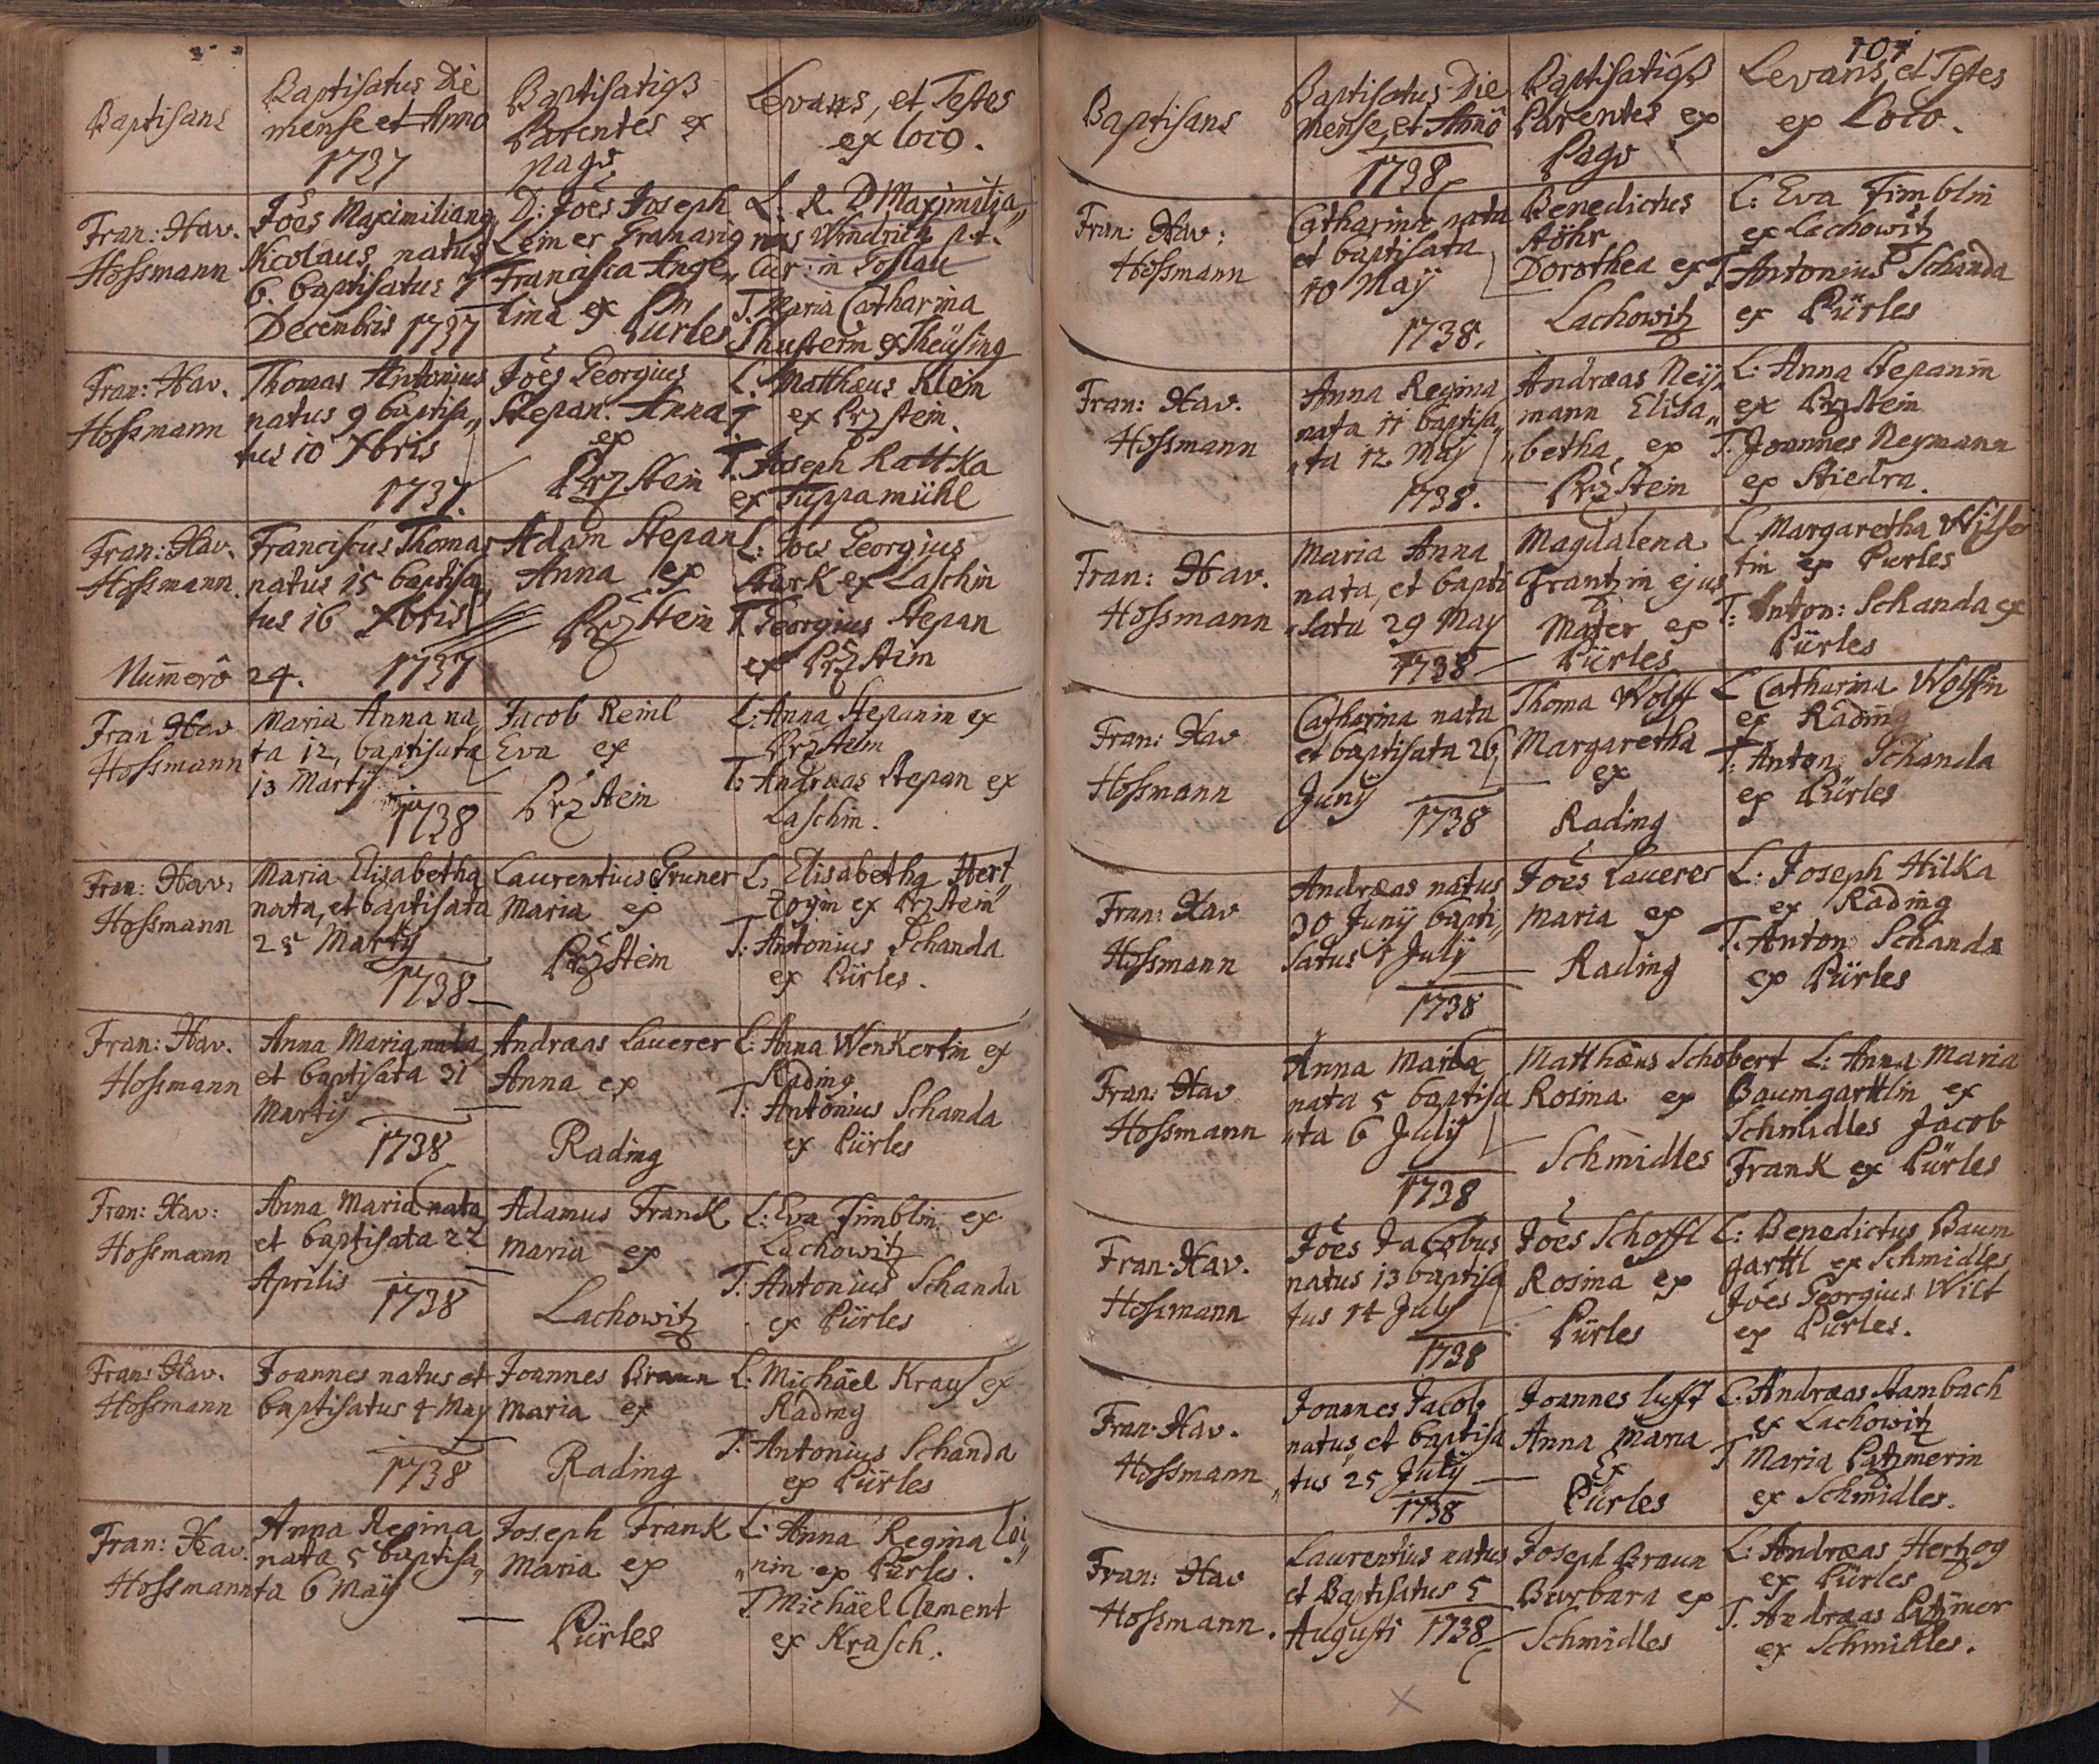 Baptisans
Baptisatus Die
mense et Anno
1737
Baptisati
Parentes ex
pago
Levans, et Testes
ex loco.
Fran: Xav.
Hossmann
Joes Maximilianus
Nicolaus natus
6. baptisatus 7
Decembris 1737
D: Joes Joseph
Francisca Ange„
lina ex
Pürles
L: R. D Maximilia„
nus
Cur: in
T. Maria Catharina
Shusterin ex Theüsing
Fran: Xav.
Hossmann
Thomas Antonius
natus 9 baptisa„
tus 10 Xbris
1737.
Joes Georgius
Stepan. Anna
ex
Przstein
L: Matthæus Klein
ex Przstein.
T. Joseph Rattka
ex Tuppamühl
Fran: Xav.
Hossmann.
Franciscus Thomas
natus 15 baptisa„
tus 16 Xbris
1737
Numerô 24.
Adam Stepan
Anna ex
Przstein
L: Joes Georgius
Stark ex Laschin
T. Georgius Stepan
ex Przstein
Fran Xav
Hossmann
Maria Anna na„
ta 12, baptisata
13 Martij
1738
Jacob Reinl
Eva ex
Przstein
L: Anna Stepanin ex
Przstein
T: Andraas Stepan ex
Laschin.
Fran: Xav:
Hossmann
Maria Elisabetha
nata, et baptisata
25 Martij
1738
Laurentius Gruner
Maria ex
Przstein
L. Elisabetha Hert„
zogin ex Przstein
T. Antonius Schanda
ex Pürles.
Fran: Xav.
Hossmann
Anna Maria nata
et baptisata 31
Martij
1738
Andraas Lauerer
Anna ex
Rading
L: Anna Wenkertin ex
Rading
T. Antonius Schanda
ex Pürles
Fran: Xav:
Hossmann
Anna Maria nata
et baptisata 22
Aprilis
1738
Adamus Franck
Maria ex
Lachowitz
L: Eva Fimblin ex
Lachowitz
T. Antonius Schanda
ex Pürles
Fran: Xav.
Hossmann
Joannes natus et
baptisatus 4 May
1738
Joannes Braun
Maria ex
Rading
L: Michäel Kraus ex
Rading
T. Antonius Schanda
ex Pürles
Fran: Xav.
Hossmann
Anna Regina
nata 5 baptisa„
ta 6 Maÿ
Joseph Frank
Maria ex
Pürles
L: Anna Regina Loi„
„nin ex Pürles.
T Michäel Clement
ex Krasch.
101
Baptisans
Baptisatus Die
Mense, et Annô
1738
Baptisati
Parentes ex
Pago
Levans, et Testes
ex Loco.
Fran: Xav:
Hossmann
Catharina nata
et baptisata
10 Maÿ
1738.
Benedictus
Röhr
Dorothea ex
Lachowitz
L: Eva Fimblin
ex Lachowitz
T. Antonius Schanda
ex Pürles
Fran: Xav.
Hossmann
Anna Regina
nata 11 baptisa„
„ta 12 Maÿ
1738.
Andræas Neÿ„
mann Elisa„
„betha, ex
Przstein
L: Anna Stepanin
ex Przstein
T. Joannes Neymann
ex Stiedra.
Fran: Xav.
Hossmann
Maria Anna
nata, et bapti
„sata 29 May
1738
Magdalena
Frantzin ejus
Mater ex
Pürles
L. Margaretha
tin ex Purles
T: Anton: Schanda ex
Pürles
Fran: Xav
Hossmann
Catharina nata
et baptisata 26
Junÿ
1738
Thoma Wolff
Margaretha
ex
Rading
L Catharina Wolffin
ex Rading
T: Anton Schanda
ex Pürles
Fran: Xav
Hossmann
Andræas natus
30 Junÿ bapti„
satus 1 July
1738
Joes Laueres
Maria ex
Rading
L: Joseph Hilka
ex Rading
T. Anton Schanda
ex Pürles
Fran: Xav
Hossmann
Anna Maria
nata 5 baptisa
„ta 6 Julÿ
1738
Matthäus Schobert
Rosina ex
Schmidles
L: Anna Maria
Baumgarttlin ex
Schmidles Jacob
Frank ex Pürles
Fran: Xav.
Hossmann
Joes Jacobus
natus 13 baptisa
tus 14 July
1738
Joes Schoffl
Rosina ex
Pürles
L: Benedictus Baum
garttl ex Schmidles
Joes Georgius Wilt
ex Pürles.
Fran: Xav.
Hossmann
Joannes Jacob
natus, et baptisa
„tus 25 July
1738
Joannes Lufft
Anna Maria
Ex
Pürles
L: Andræas Stambach
ex Lachowitz
T Maria Patzmerin
ex Schmidles.
Fran: Xav
Hossmann.
Laurentius natus
et Baptisatus 5
Augusti 1738
Joseph Braun
Barbara ex
Schmidles
L: Andræas Hertzog
ex Pürles
T. Andræas Patzmer
ex Schmidles.